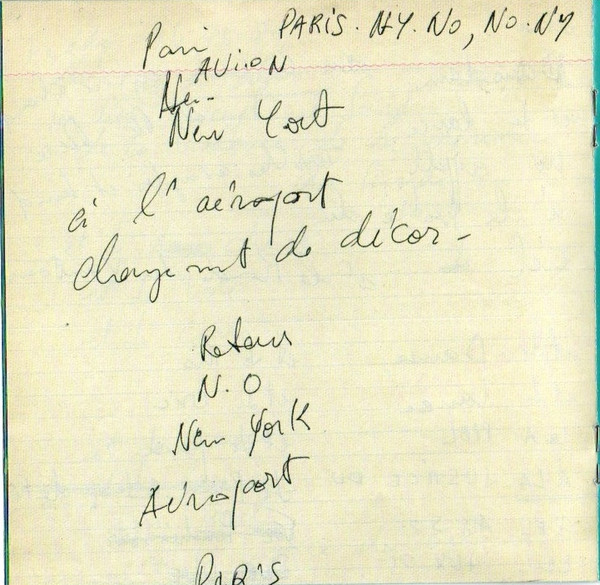 PARIS. NY. NO, NO. NY
Paris
AVION
Ne-
New York
à l'aéroport
changement de décor -
Retour
N.O
New York
Aéroport
PARIS